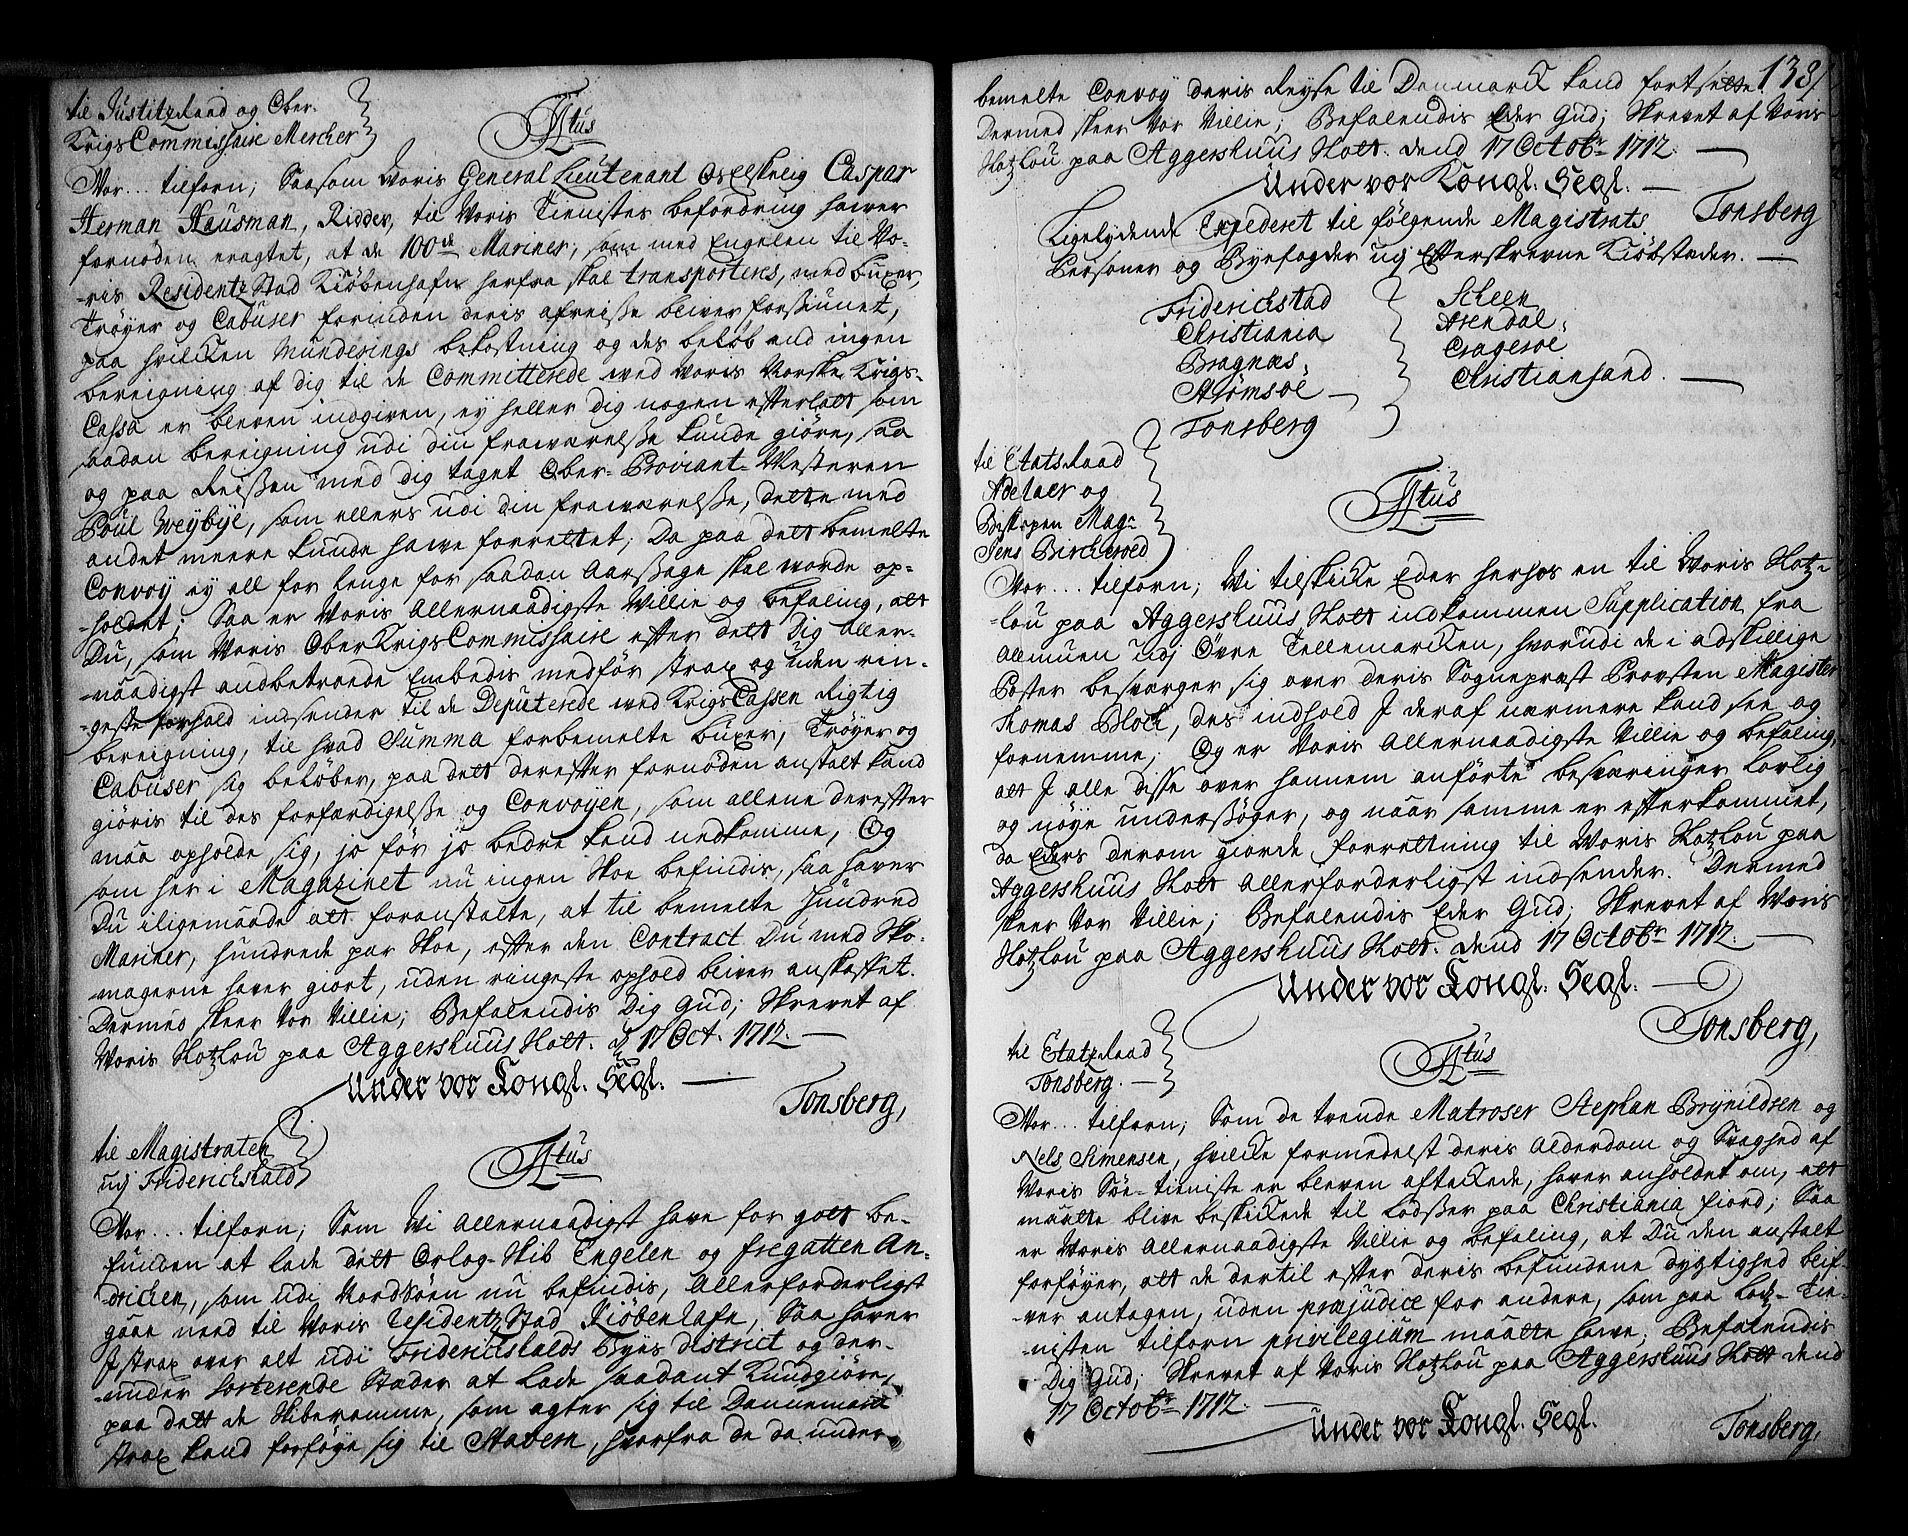 til Justitz Raad og Ober-
Krigs Commissaire Mercher
Ftus
Vor... tilforn; Saasom Voris General Lieutenant Caspar
Herman Hausman, Ridder, til Voris Tienistes befordring hawer
fornøden eragtet, at de 100de Mariner; som med Engelen til Vo-
ris Residentz Stad Kiøbenhafn herfra skal transporteres, med buxer,
Trøyer og Cabuser forinden deris afreisse bliver forsiunet,
paa hvilcken Munderings bekostning og des beløb end ingen
bereigning af dig til de Committerede wed Voris Norske Krigs-
Cassa er bleven indgiven, ey heller dig nogen efterladt som
saadan bereigning udi din frawærelse kunde giøre, saa
og paa Reissen med dig taget Ober-Proviant-Mesteren
Poul Weybye, som ellers udi din frawærelse, dette med
andet meere kunde hawe forrettet; Da paa det bemelte
Convoy ey all for lenge for saadan Aarsage skal worde op-
holdet; Saa er Voris Allernaadigste Villie og befaling, att
Du, som Voris Ober Krigs Commissaire efter dett Dig Aller-
naadigst anbetroede Embedis medfør strax og uden rin-
geste forhold indsender til de Deputerede wed Krigs Cassen Rigtig
bereigning, til hvad Summa forbemelte buxer, Trøyer og
Cabuser sig beløber, paa dett derefter fornøden anstalt kand
giøris til des forfærdigelse og Convoyen, som allene derefter
maa opholde sig, jo før jo bedre kand nedkomme, Og
som her i Magazinet nu ingen Skoe befindis, saa hawer
Du iligemaade att foranstalte, at til bemelte Hundred
Mariner, hundrede par Skoe, efter den Contract Du med Sko-
magerne hawer giort, uden ringeste ophold bliver anskaffet.
Dermed skeer Vor Villie; Befalendis Dig Gud; Skrevet af
Voris Slotzlou paa Aggershuus Slott. d 17 Oct. 1712.
Under vor Kongl. Segl.
Tonsberg,
til Magistraten
udj Friderichshald
Ftus
Vor... tilforn; Som Vi Allernaadigst hawe for gott be-
funden at lade dett Orlog-Skib Engelen og fregatten An-
drichen, som udi Nordsøen nu befindis, Allerforderligst
gaae need til Voris Residentz Stad Kiøbenhafn, Saa hawer
I strax over alt udi Friderichshalds Byes district og der-
under sorterende Stæder at lade saadant Kundgiøre,
paa dett de Skibe komme, som agter sig til Dannemarck
strax kand forføye sig til Stavern, hvorfra de da under
138
bemelte Convoy deris Reyse til Danmarck kand fortsette
Dermed skeer Vor Villie; Befalendis Eder Gud; Skrevet af Voris
Slotzlou paa Aggershuus Slott. dend 17 Octobr 1712.
Under vor Kongl. Segl.
Tonsberg
Ligelydende Expederet til følgende Magistrats
Personer og Byefogder udj Efterskrevne Kiøbstæder.
Friderichstad
Christiania
Bragnæs,
Strømsoe
Tonsberg
Scheen
Arendal,
Cragerøe
Christiansand.
til Etats Raad
Adelaer og
Biskopen Mag:
Jens Bircheroed
Ftus
Vor... tilforn; Vi tilskicke Eder herhos en til Voris Slotz-
lou paa Aggershuus Slott indkommen Supplication fra
Almuen udj Øvre Tellemarcken, hvorudi de i adskillige
Poster besværger sig over deris Sogneprest Provsten Magister
Thomas Block, des indhold I deraf nærmere kand see og
fornemme; Og er Voris Allernaadigste Villie og befaling,
att I alle disse over hannem anførte besværinger lovlig
og nøye undersøger, og naar samme er efterkommet,
da Eders derom giorde forrettning til Voris Slotzlou paa
Aggershuus Slott Allerforderligst indsender. Dermed
skeer Vor Villie; Befalendis Eder Gud; Skrevet af Voris
Slotzlou paa Aggershuus Slott. dend 17 Octobr 1712.
Under vor Kongl. Segl.
Tonsberg,
til Etatz Raad
Tonsberg.
Ftus
Vor... tilforn; Som de trende Matroser Stephan Brynildsen og
Nels Simensen, hvilcke formedelst deris Alderdom og Svaghed af
Voris Søe-tieniste er bleven aftackede, hawer anholdet om, att
maatte blive beskickede til Lodsser paa Christiania fiord; Saa
er Voris Allernaadigste Villie og befaling, at Du den anstalt
forføyer, att de dertil efter deris befundene dygtighed blif-
ver antagen, uden præjudice for andre, som paa Lotz-Tie-
nisten tilforn privilegium maatte hawe; Befalendis
Dig Gud; Skrevet af Voris Slotzlou paa Aggershuus Slott dend
17 Octobr 1712.
Under vor Kongl. Segl.
Tonsberg,